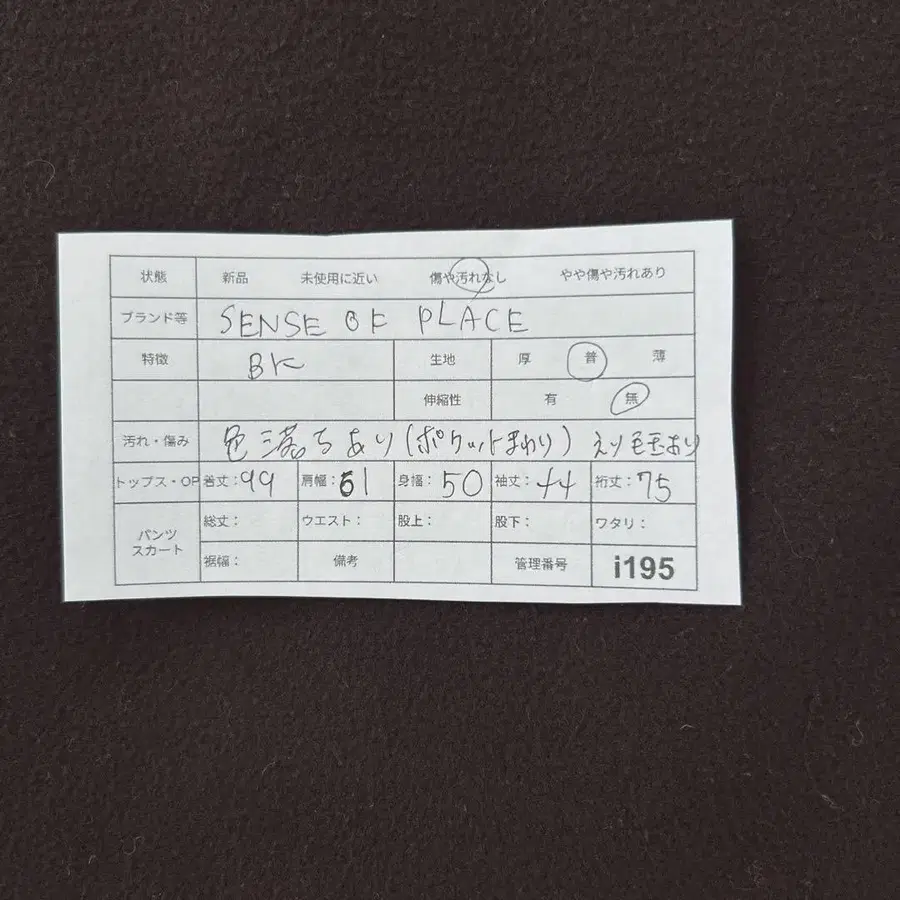 状態 新品 未使用に近い 傷や汚れなし やや傷や汚れあり
ブランド等 SENSE OF PLACE
特徴 BK 生地 厚 普 薄
伸縮性 有 無
汚れ・傷み 色落ちあり(ポケットまわり) えり毛玉あり
トップス・OP 着丈:99 肩幅:61 身幅:50 袖丈:44 裄丈:75
パンツ スカート 総丈: ウエスト: 股上: 股下: ワタリ:
裾幅: 備考 管理番号 i195